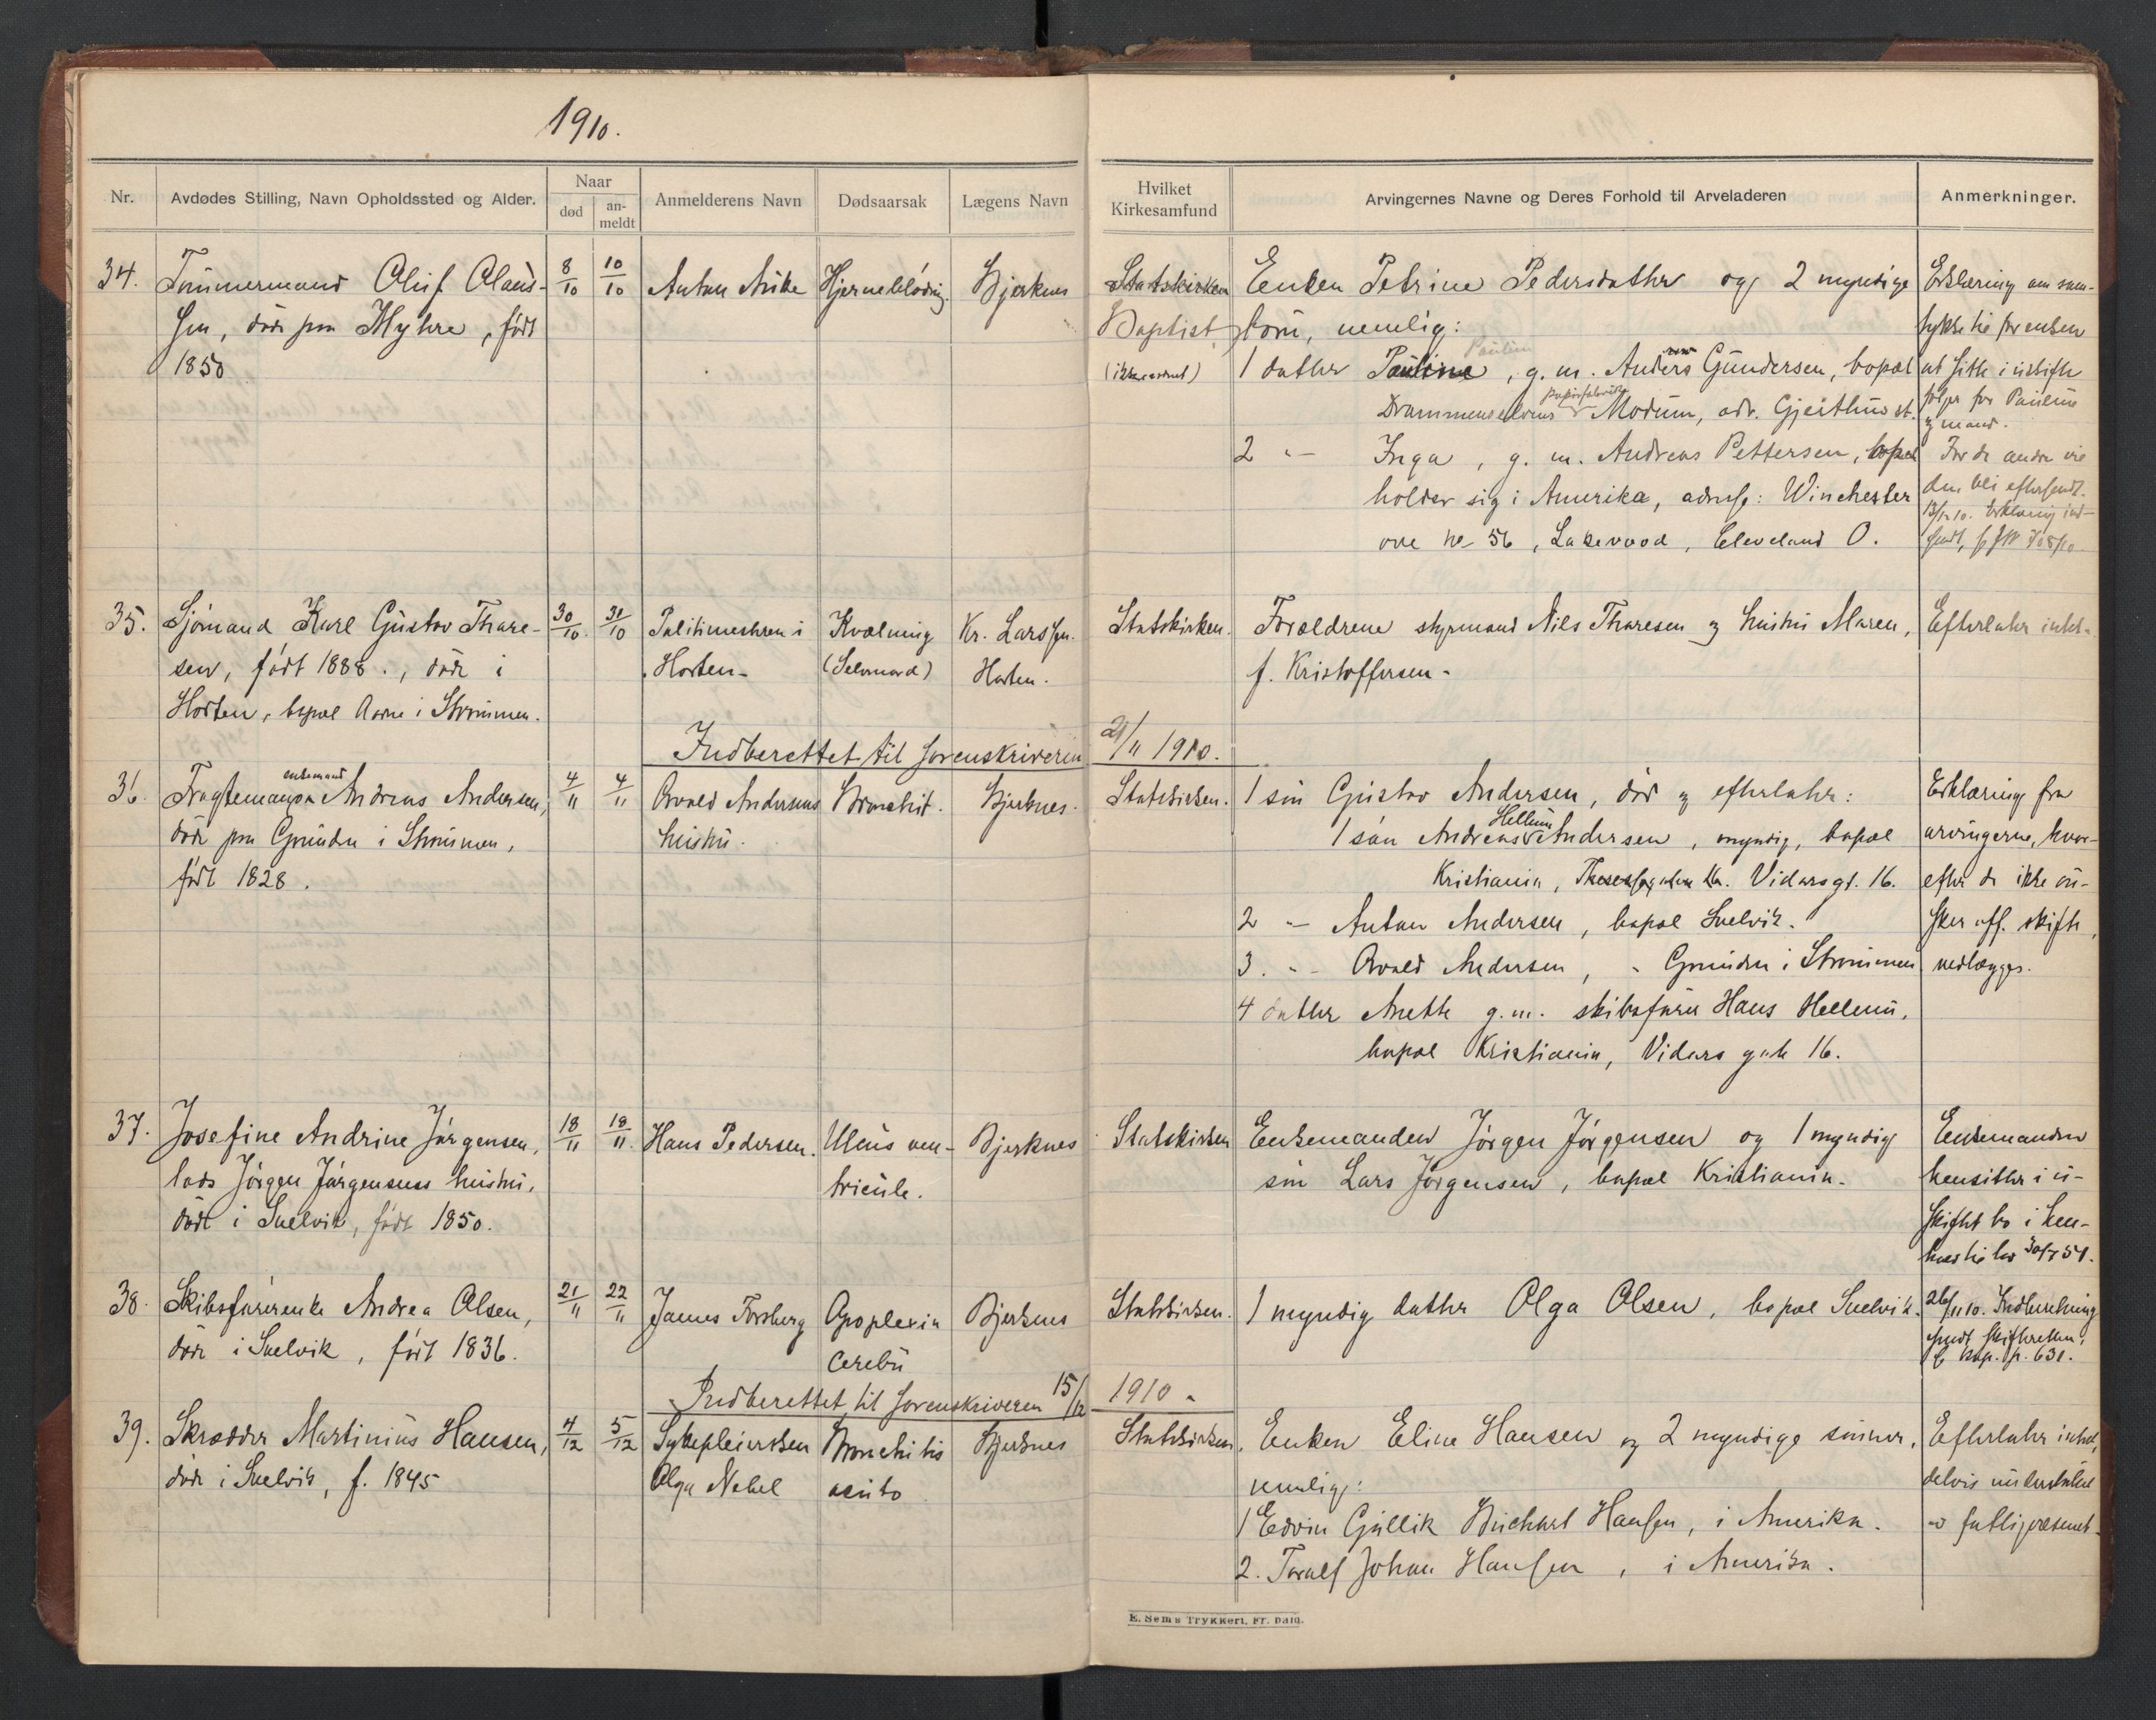 1910.
Nr.
Avdødes Stilling, Navn Opholdssted og Alder.
Naar
død
an-
meldt
Anmelderens Navn
Dødsaarsak
Lægens Navn
Hvilket
Kirkesamfund
Arvingernes Navne og Deres Forhold til Arveladeren
Anmerkninger.
34. Tømmermand Oluf Olaus-
sen, død paa Myhre, født
1850
8/10
10/10
Anton
Hjerneblødnig.
Bjerknes
Statskirken
Baptist
Enken Petrine Pedersdatter og 2 myndige
barn, nemlig:
1 datter Pauline, g. m. Anders Gundersen, bopæl
Pauline
Drammenselvens papirfabrikk Modum, adr. Gjeithus st.
2 " Inga, g. m. Andreas Pettersen, bopæl
holder sig i Amerika, adresse: Winchester
ave No 56, Lakewood, Cleveland O.
Erklæring om sam-
tykke til for enken
at sitte i uskifte
følger for Pauline
og mand.
For de andre vil
den bli eftersendt.
13/12 10. Erklæring ind-
sendt,
35. Sjømand Karl Gustav Thore-
sen, født 1888., død i
Horten, bopæl Aarne i Strømmen.
30/10.
31/10
Politimesteren i
Horten
Kvælning
(Selvmord)
Kr. Larssen.
Horten.
Statskirken.
Forældrene styrmand Nils Thoresen og hustru Maren,
f. Kristoffersen
Efterlater intet.
Indberettet til sorenskriveren 21/11 1910.
36. Fragtemand enkemand Andreas Andersen,
død paa Grunden i Strømmen,
født 1828.
4/11
4/11
Osvald Andersens
hustru.
Bronchit.
Bjerknes.
Statskirken.
1 søn Gustav Andersen, død og efterlater:
1 søn Andreas Hellum Andersen, myndig, bopæl
Kristiania, Vidarsgt. 16.
2 " Anton Andersen, bopæl Svelvik.
3. " Osvald Andersen, " Grunden i Strømmen
4 datter Anette g.m. skibsfører Hans Hellum,
bopæl Kristiania, Vidars gate 16.
Erklæring fra
arvingerne, hvor-
efter de ikke øn-
sker off. skifte,
vedlægges.
37. Josefine Andrine Jørgensen,
lods Jørgen Jørgensens hustru,
død i Svelvik, født 1850.
18/11
18/11.
Hans Pedersen.
Ulcus ven-
tricule.
Bjerknes
Statskirken
Enkemanden Jørgen Jørgensen og 1 myndig
søn Lars Jørgensen, bopæl Kristiania.
Enkemanden
hensitter i u-
skiftet bo i hen-
hold til lov 30/7 51.
38. Skibsførerenke Andrea Olsen,
død i Svelvik, født 1836.
21/11
22/11
James Forsberg
Apoplexia
cerebri
Bjerknes
Statskirken.
1 myndig datter Olga Olsen, bopæl Svelvik.
26/11 10. Indberetning
sendt skifteretten,
kop. p. 631.
Indberettet til sorenskriveren 15/12 1910
39. Skrædder Martinius Hansen,
død i Svelvik, f. 1845
4/12
5/12
Sykepleiersken
Olga Nebel
Bronchitis
acuto
Bjerknes
Statskirken.
Enken Eline Hansen og 2 myndige sønner,
nemlig:
1 Edvin Gullik Buchart Hansen, i Amerika.
2. Toralf Johan Hansen, i Amerika.
Efterlater intet,
delvis understøttet
av fattigvæsenet
E. Sems Trykkeri, Fr. hald.